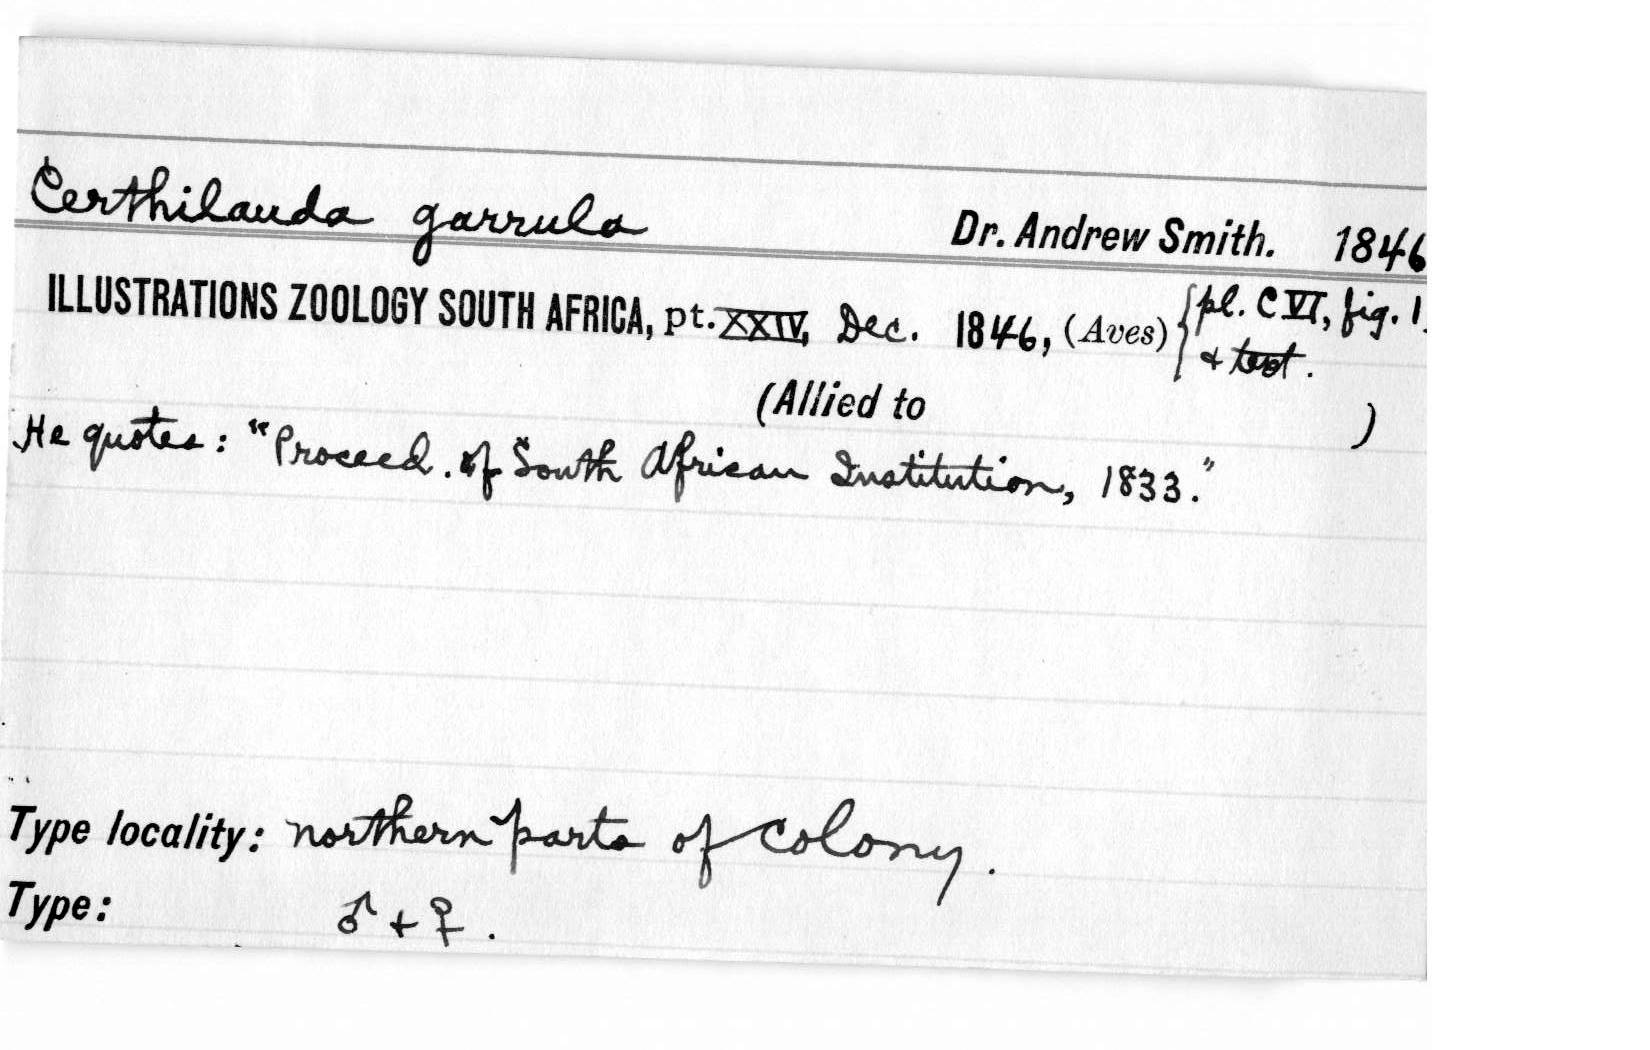 Certhilauda garrula Dr. Andrew Smith. 1846
ILLUSTRATIONS ZOOLOGY SOUTH AFRICA, pt. XXIV, Dec. 1846, (Aves) { pl. CVI, fig. 1.
& text.
(Allied to )
He quotes: "Proceed. of South African Institution, 1833."
Type locality: northern parts of colony.
Type: ♂ + ♀.